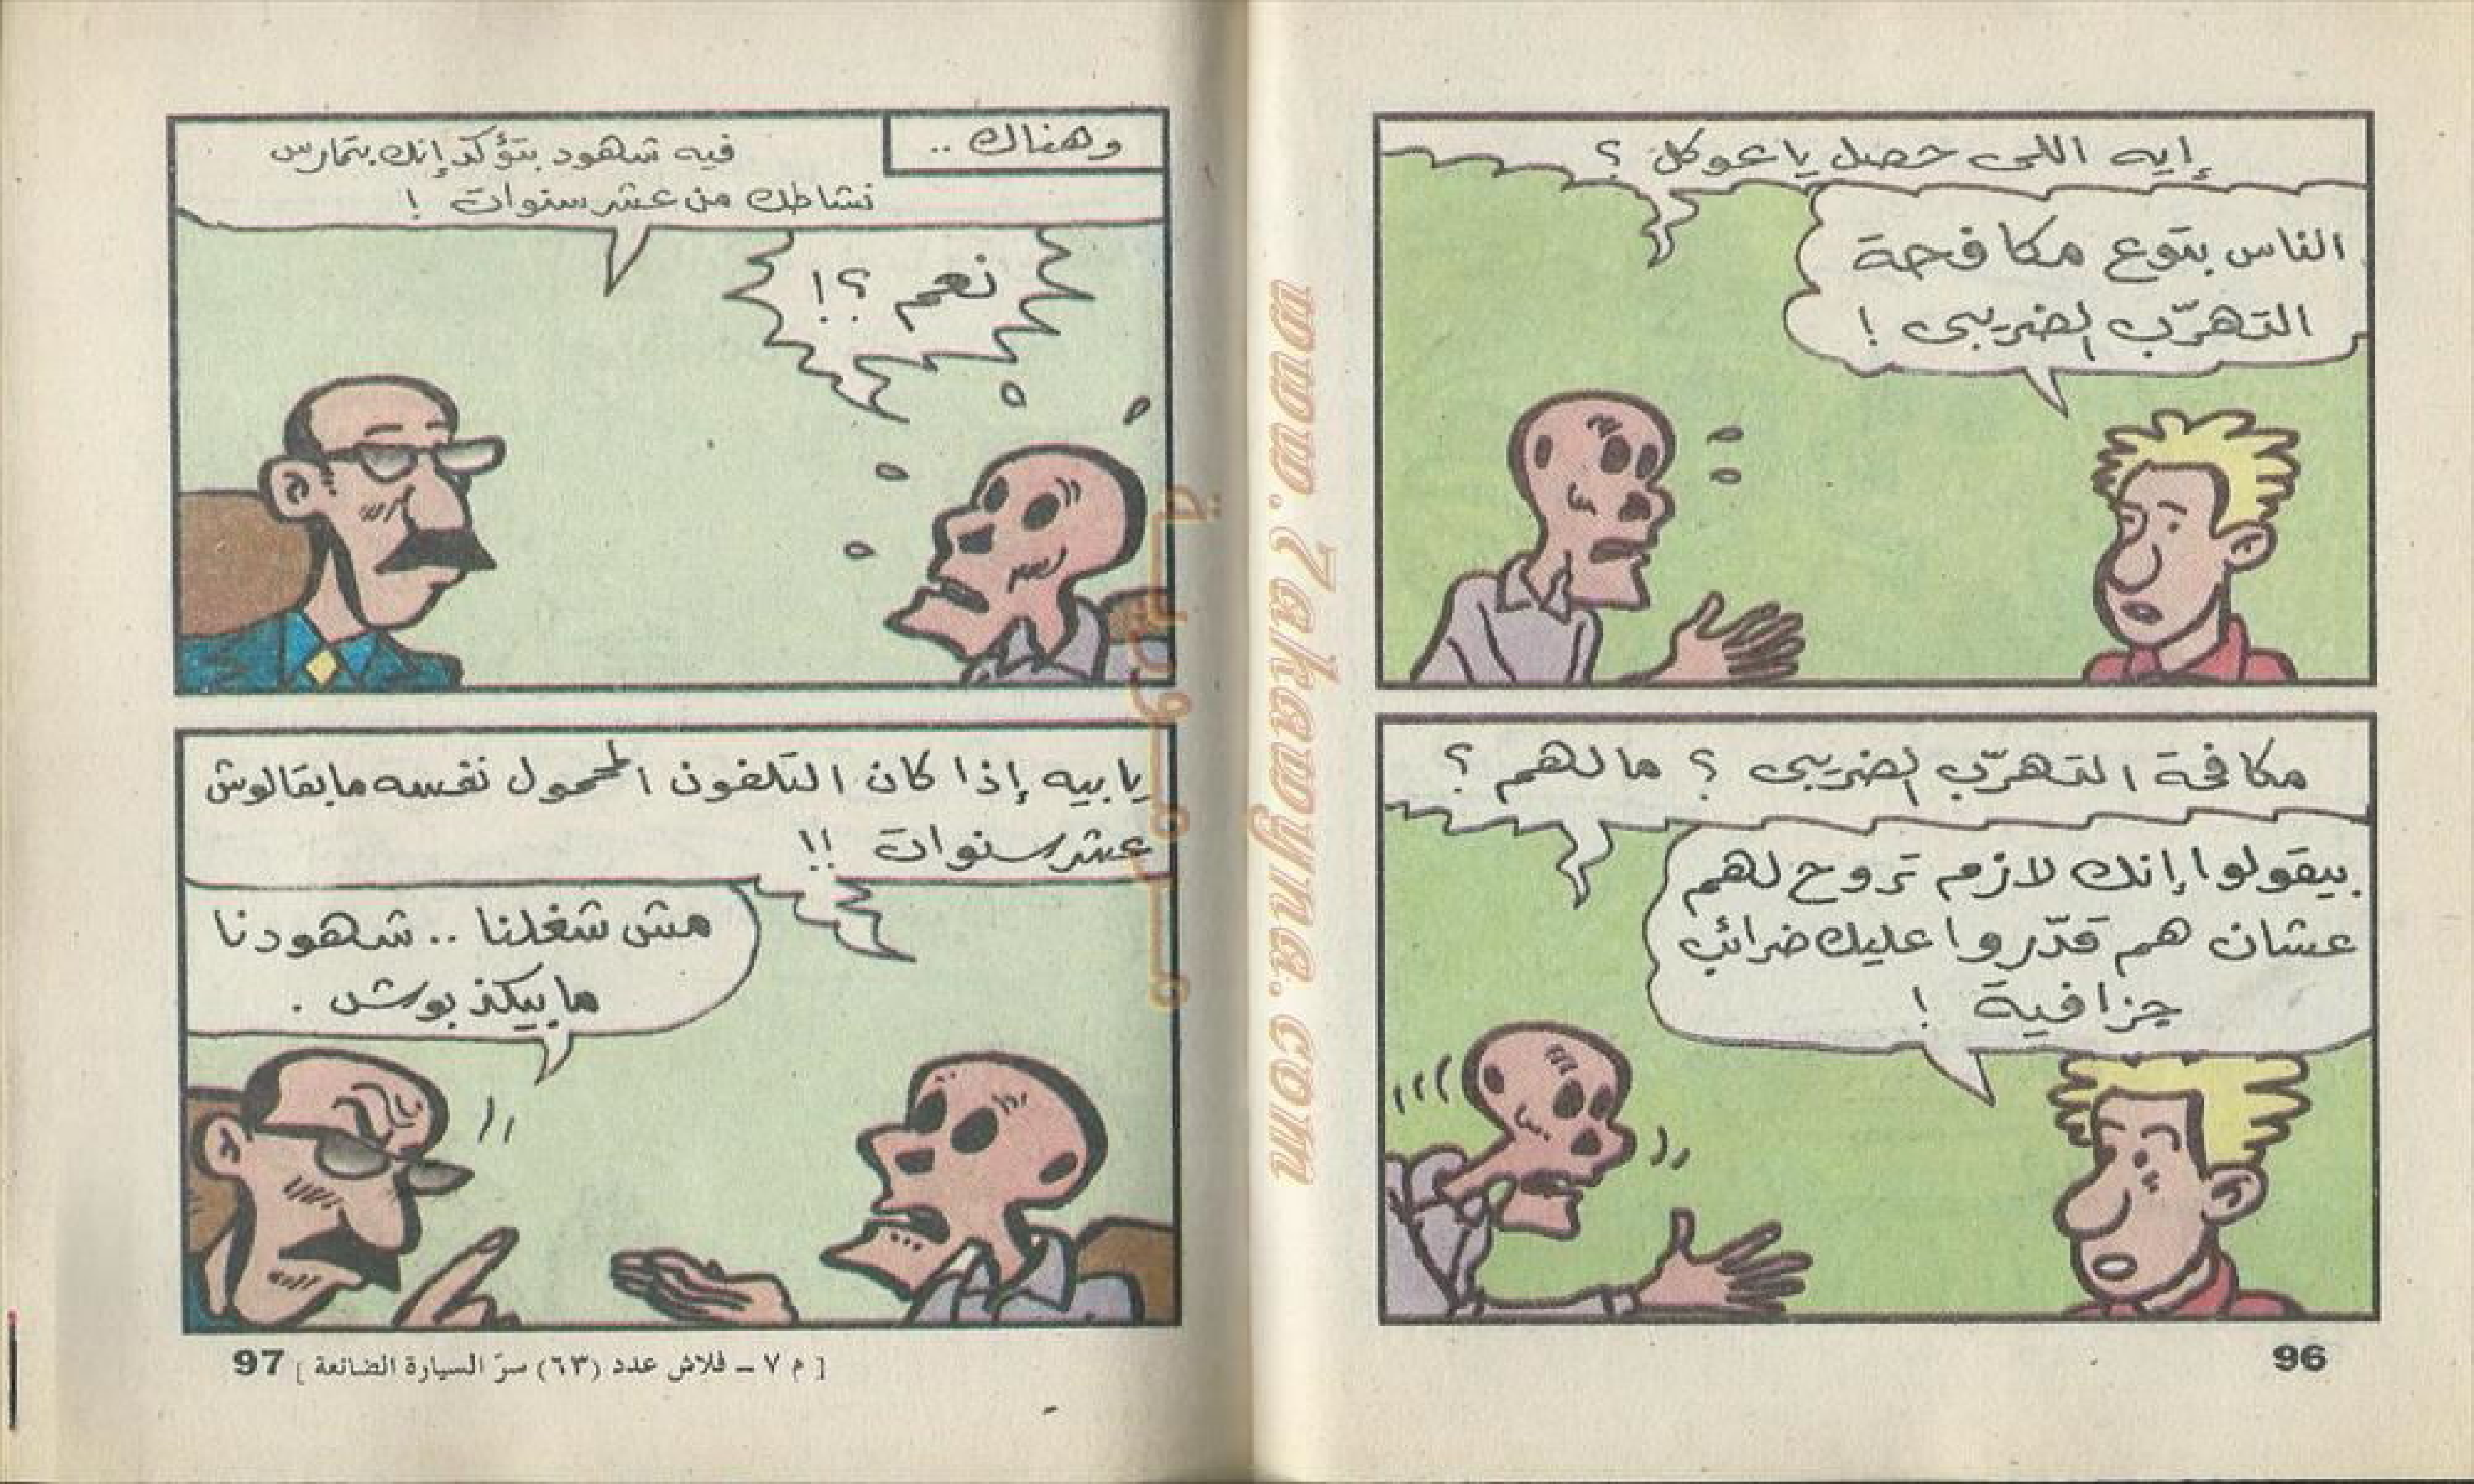 إيه اللى حصل يا عوكل ؟
الناس بتوع مكافحة
التهرّب الضريبى !
مكافحة التهرّب الضريبى ؟ مالهم ؟
بيقولوا إنك لازم تروح لهم
عشان هم قدّروا عليك ضرائب
جزافية !
96
وهناك ..
فيه شهود بتؤكد إنك بتمارس
نشاطك من عشر سنوات !
نعم ؟!
يابيه إذا كان التلفون المحمول نفسه مابقالوش
عشر سنوات !!
مش شغلنا .. شهودنا
مابيكذبوش .
[ م ٧ – فلاش عدد (٦٣) سرّ السيارة الضائعة ] 97
www.7akawyna.com